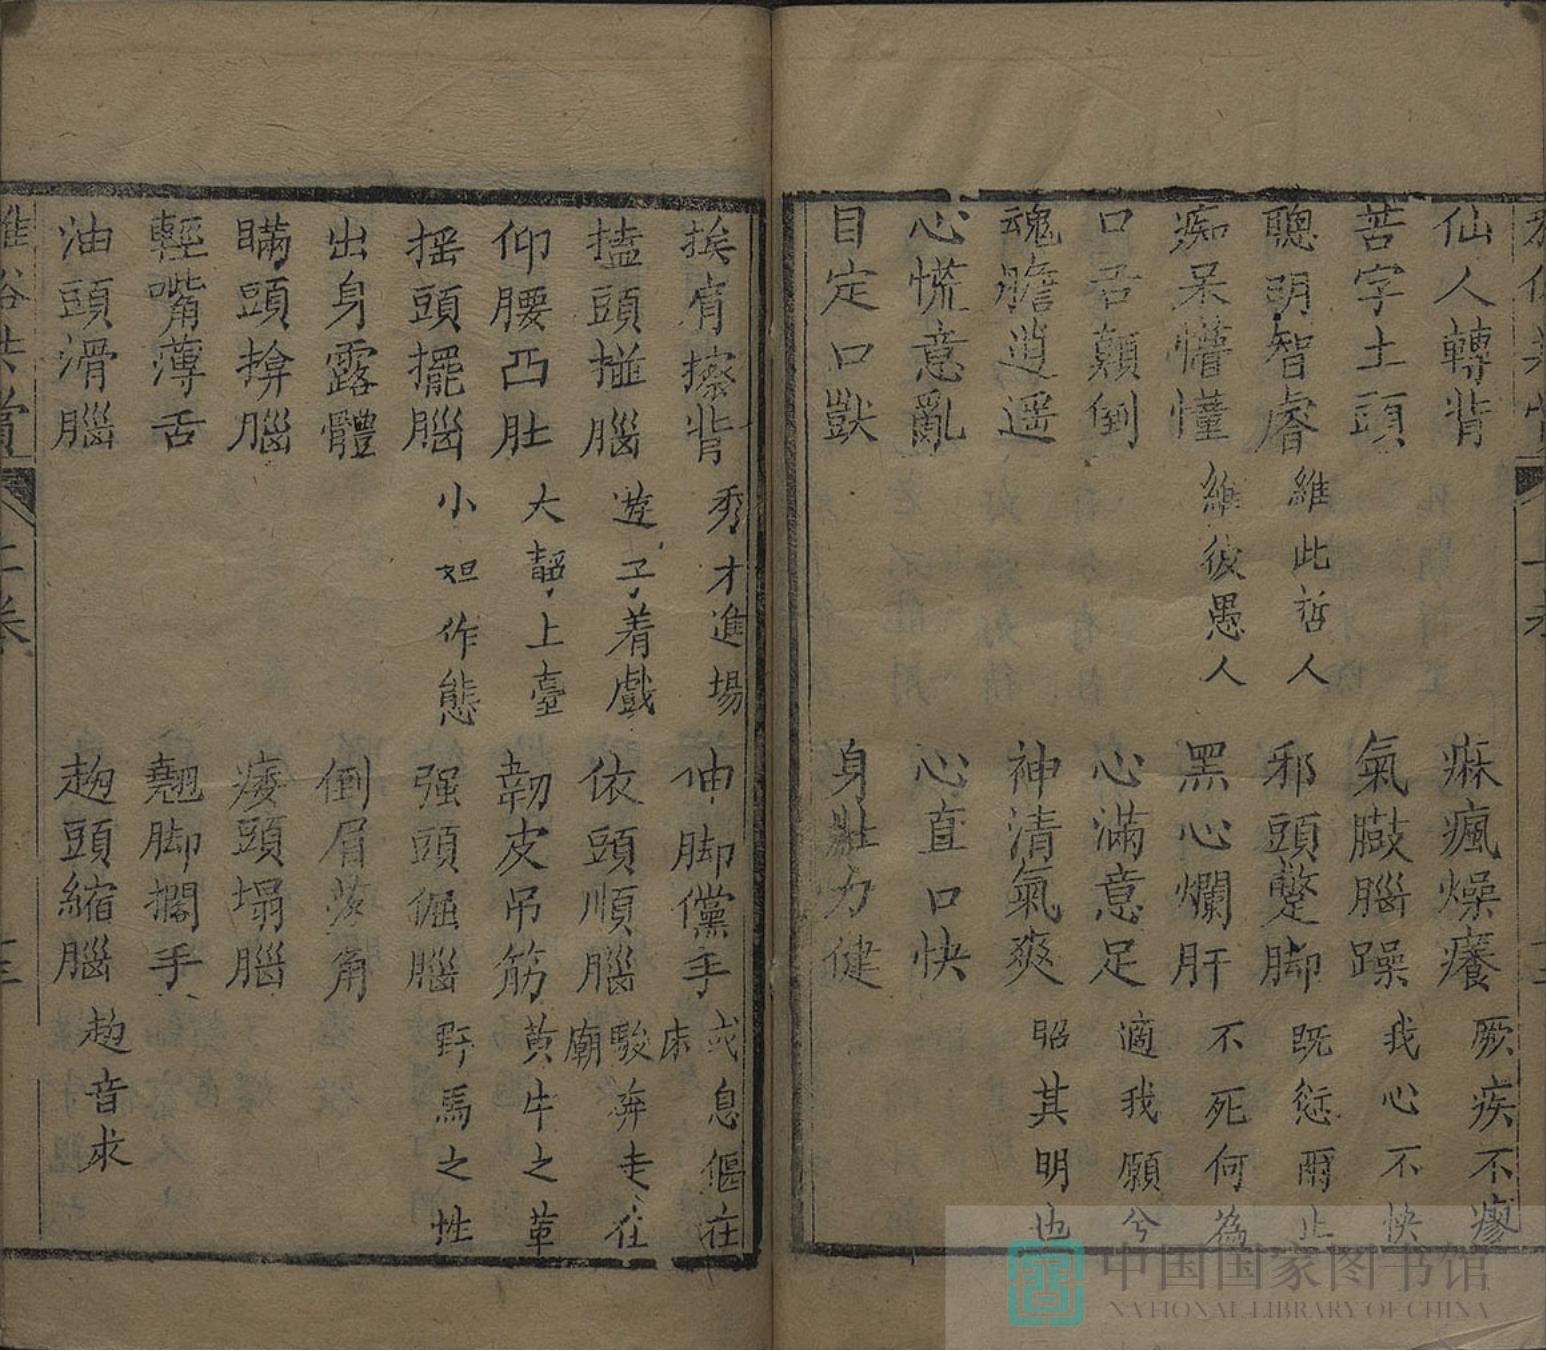 仙人轉背
痳瘋燥癢 厥疾不瘳
苦字土頭
氣臌腦躁 我心不快
聰明智睿 維此哲人
邪頭蹩脚 既愆爾止
痴呆懵懂 維彼愚人
黑心爛肝 不死何為
口君顛倒
心滿意足 適我願兮
魂膽逍遥
神清氣爽 昭其明也
心慌意亂
心直口快
目定口獃
身壯力健
挨肩擦背 秀才進場
伸脚儻手 或息偃在床
搕頭搓腦 遊子着戲
依頭順腦 駿奔走在廟
仰腰凸肚 大韶上臺
韌皮吊筋 黄牛之革
摇頭擺腦 小妲作態
强頭倔腦 野馬之性
出身露體
倒眉落角
瞞頭揜腦
痿頭塌腦
輕嘴薄舌
翹脚擱手
油頭滑腦
趜頭縮腦 趜音求
雅俗共賞 上卷 十三
中国国家图书馆
NATIONAL LIBRARY OF CHINA